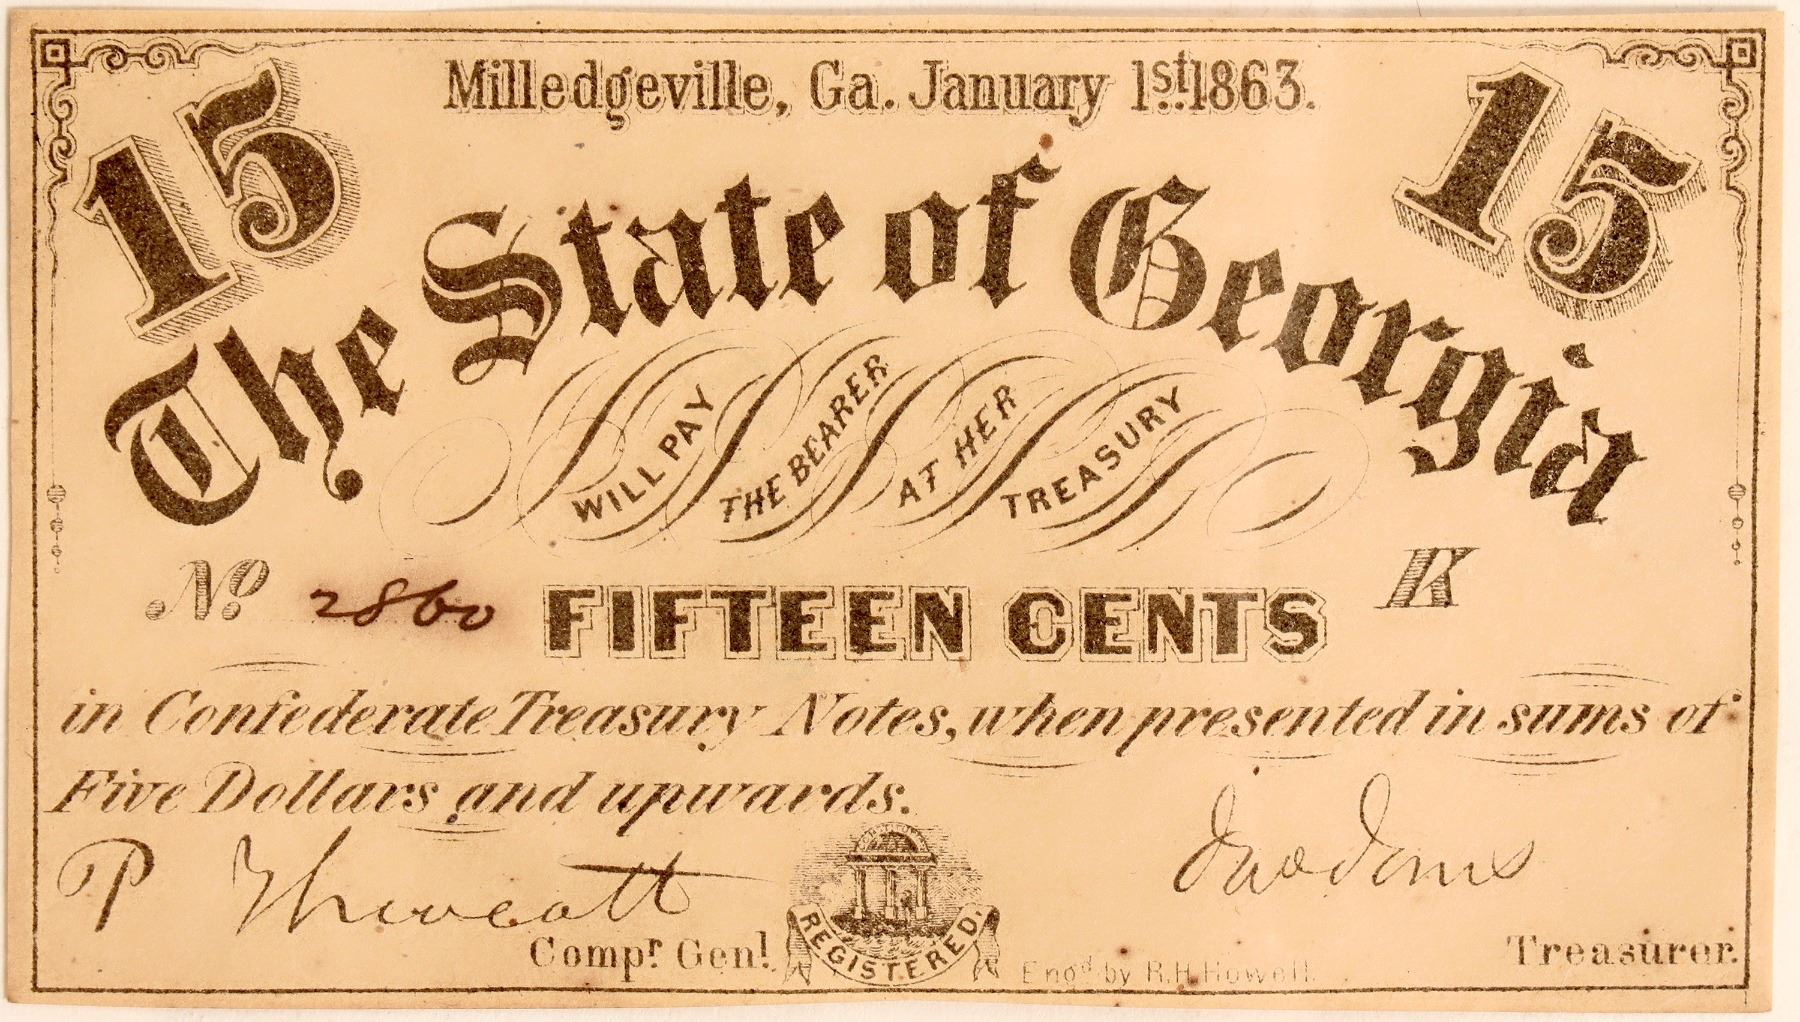 Milledgeville, Ga. January 1st. 1863.
15 15
The State of Georgia
WILL PAY THE BEARER AT HER TREASURY
No. 2860 FIFTEEN CENTS K
in Confederate Treasury Notes, when presented in sums of
Five Dollars and upwards.
P Thweatt Jno Jones
Compr. Genl. REGISTERED. Treasurer.
Engd by R.H. Howell.